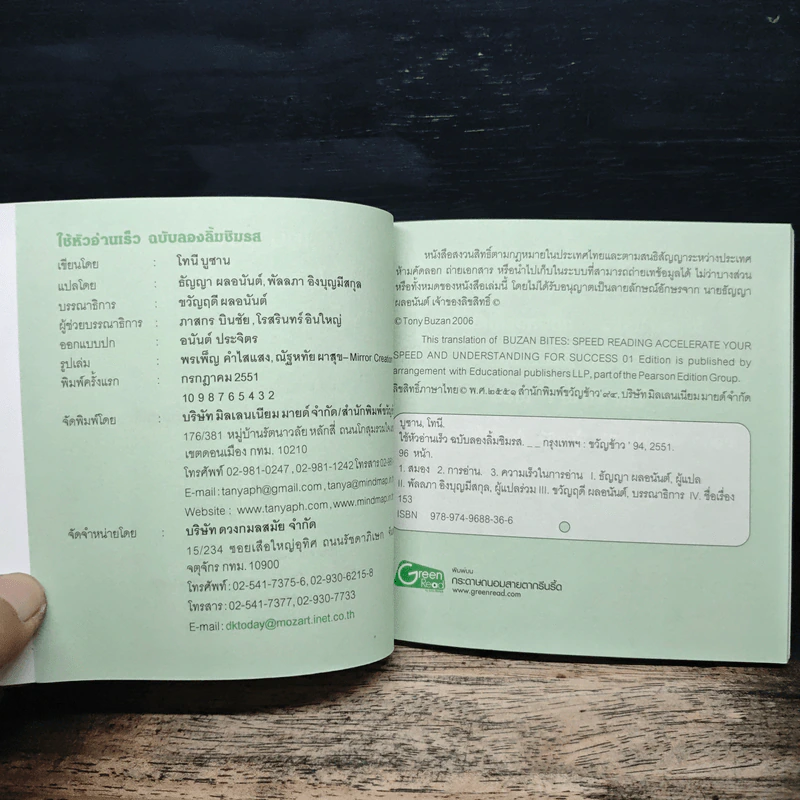 ใช้หัวอ่านเร็ว ฉบับลองลิ้มชิมรส
เขียนโดย : โทนี บูซาน
แปลโดย : ธัญญา ผลอนันต์, พัลลภา อิงบุญมีสกุล
บรรณาธิการ : ขวัญฤดี ผลอนันต์
ผู้ช่วยบรรณาธิการ : ภาสกร บินชัย, โรสรินทร์ อินใหญ่
ออกแบบปก : อนันต์ ประจิตร
รูปเล่ม : พรเพ็ญ คำใสแสง, ณัฐหทัย ผาสุข– Mirror Creation
พิมพ์ครั้งแรก : กรกฎาคม 2551
10 9 8 7 6 5 4 3 2
จัดพิมพ์โดย : บริษัท มิลเลนเนียม มายด์ จำกัด/สำนักพิมพ์
176/381 หมู่บ้านรัตนาวลัย หลักสี่ ถนนโกสุมรวมใจ
เขตดอนเมือง กทม. 10210
โทรศัพท์ 02-981-0247, 02-981-1242 โทรสาร
E-mail : tanyaph@gmail.com, tanya@mindmap
Website : www.tanyaph.com, www.mindmap
จัดจำหน่ายโดย : บริษัท ดวงกมลสมัย จำกัด
15/234 ซอยเสือใหญ่อุทิศ ถนนรัชดาภิเษก
จตุจักร กทม. 10900
โทรศัพท์ : 02-541-7375-6, 02-930-6215-8
โทรสาร : 02-541-7377, 02-930-7733
E-mail : dktoday@mozart.inet.co.th
หนังสือสงวนสิทธิ์ตามกฎหมายในประเทศไทยและตามสนธิสัญญาระหว่างประเทศ
ห้ามคัดลอก ถ่ายเอกสาร หรือนำไปเก็บในระบบที่สามารถถ่ายเทข้อมูลได้ ไม่ว่าบางส่วน
หรือทั้งหมดของหนังสือเล่มนี้ โดยไม่ได้รับอนุญาตเป็นลายลักษณ์อักษรจาก นายธัญญา
ผลอนันต์ เจ้าของลิขสิทธิ์ ©
© Tony Buzan 2006
This translation of BUZAN BITES: SPEED READING ACCELERATE YOUR
SPEED AND UNDERSTANDING FOR SUCCESS 01 Edition is published by
arrangement with Educational publishers LLP, part of the Pearson Edition Group.
ลิขสิทธิ์ภาษาไทย © พ.ศ.๒๕๕๑ สำนักพิมพ์ขวัญข้าว'๙๔, บริษัท มิลเลนเนียม มายด์ จำกัด
บูซาน, โทนี.
ใช้หัวอ่านเร็ว ฉบับลองลิ้มชิมรส. _ _ กรุงเทพฯ : ขวัญข้าว '94, 2551.
96 หน้า.
1. สมอง 2. การอ่าน. 3. ความเร็วในการอ่าน I. ธัญญา ผลอนันต์, ผู้แปล
II. พัลลภา อิงบุญมีสกุล, ผู้แปลร่วม III. ขวัญฤดี ผลอนันต์, บรรณาธิการ IV. ชื่อเรื่อง
153
ISBN 978-974-9688-36-6
Green Read
พิมพ์บน
กระดาษถนอมสายตากรีนรี้ด
www.greenread.com